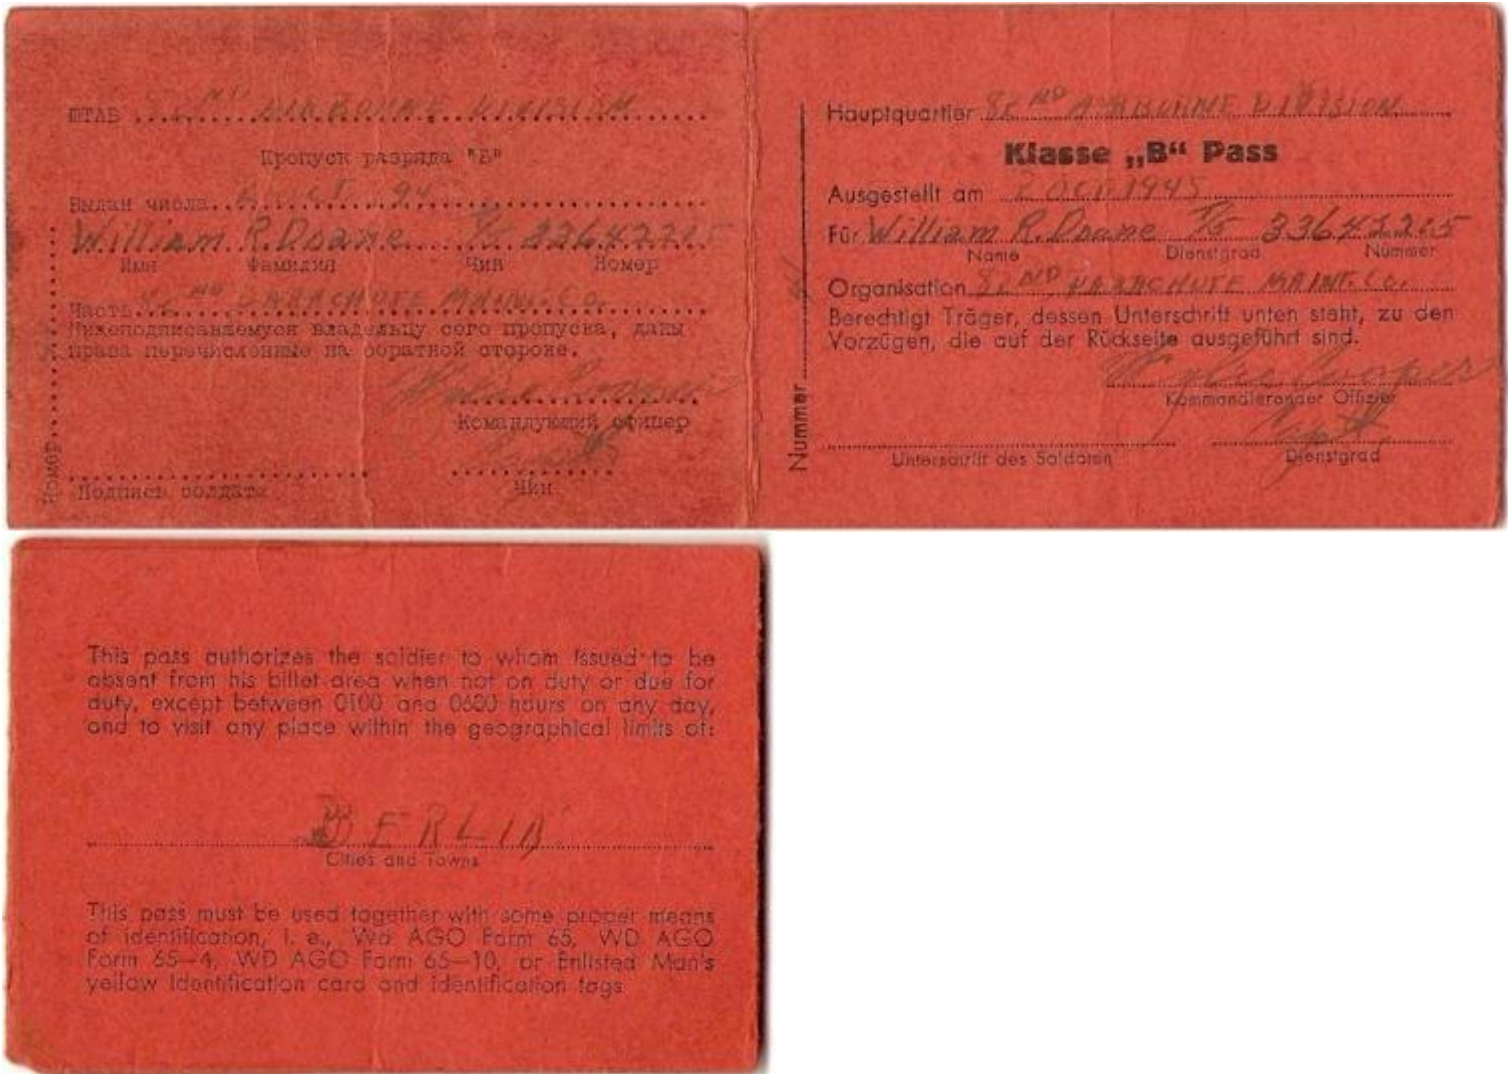 ШТАБ 82ND AIRBORNE DIVISION
Пропуск разряда "Б"
Выдан числа 2 OCT. 194
William R. Doane T/5 33642205
Имя Фамилия Чин Номер
Часть 82ND PARACHUTE MAINT. Co.
Нижеподписавшемуся владельцу сего пропуска, даны
права перечисленные на обратной стороне.
Wylie Cooper
Командующий офицер
Capt.
Подпись солдата Чин
Номер
Hauptquartier 82ND AIRBORNE DIVISION
Klasse „B“ Pass
Ausgestellt am 2 OCT. 1945
Für William R. Doane T/5 33642205
Name Dienstgrad Nummer
Organisation 82ND PARACHUTE MAINT. Co.
Berechtigt Träger, dessen Unterschrift unten steht, zu den
Vorzügen, die auf der Rückseite ausgeführt sind.
Wylie Cooper
Kommandierender Offizier
Capt.
Unterschrift des Soldaten Dienstgrad
Nummer
This pass authorizes the soldier to whom issued to be
absent from his billet area when not on duty or due for
duty, except between 0100 and 0600 hours on any day,
and to visit any place within the geographical limits of:
BERLIN
Cities and Towns
This pass must be used together with some proper means
of identification, i. e., Wd AGO Form 65, WD AGO
Form 65—4, WD AGO Form 65—10, or Enlisted Man's
yellow Identification card and identification tags